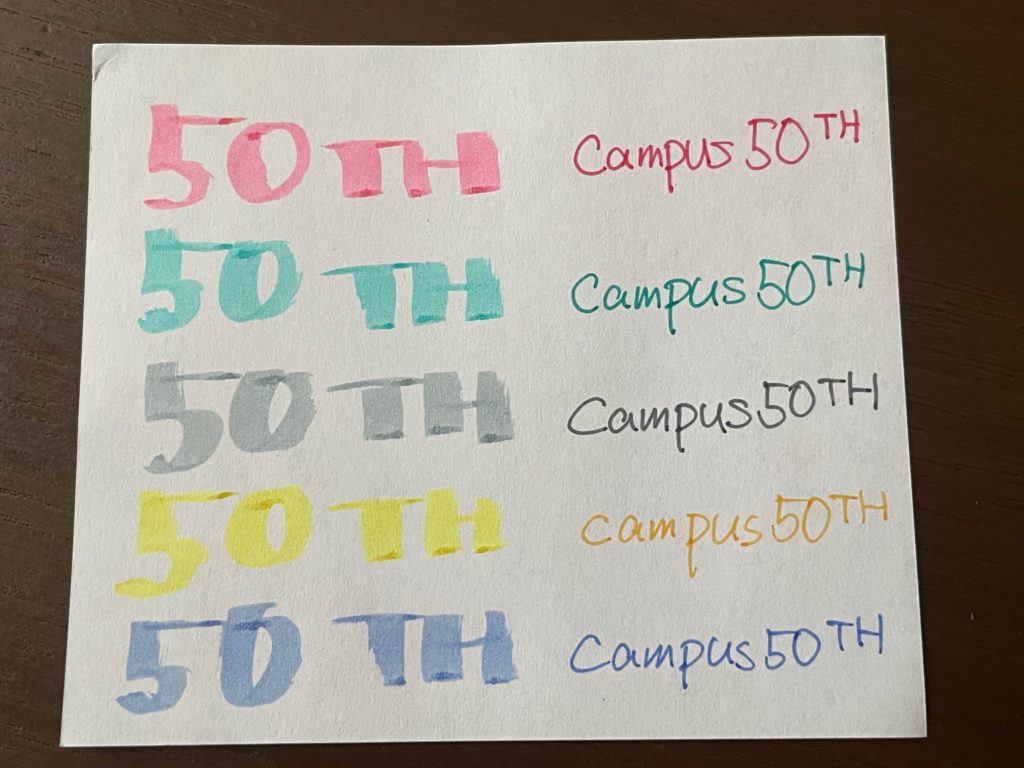 50TH Campus 50TH
50TH Campus 50TH
50TH Campus 50TH
50TH campus 50TH
50TH Campus 50TH